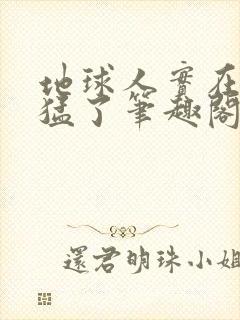 地球人實在
猛了筆趣閣
還君明珠小姐